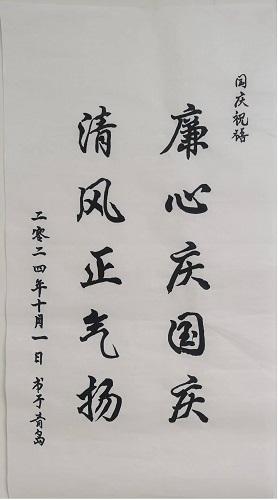 国庆祝语
廉心庆国庆
清风正气扬
二零二四年十月一日 书于青岛